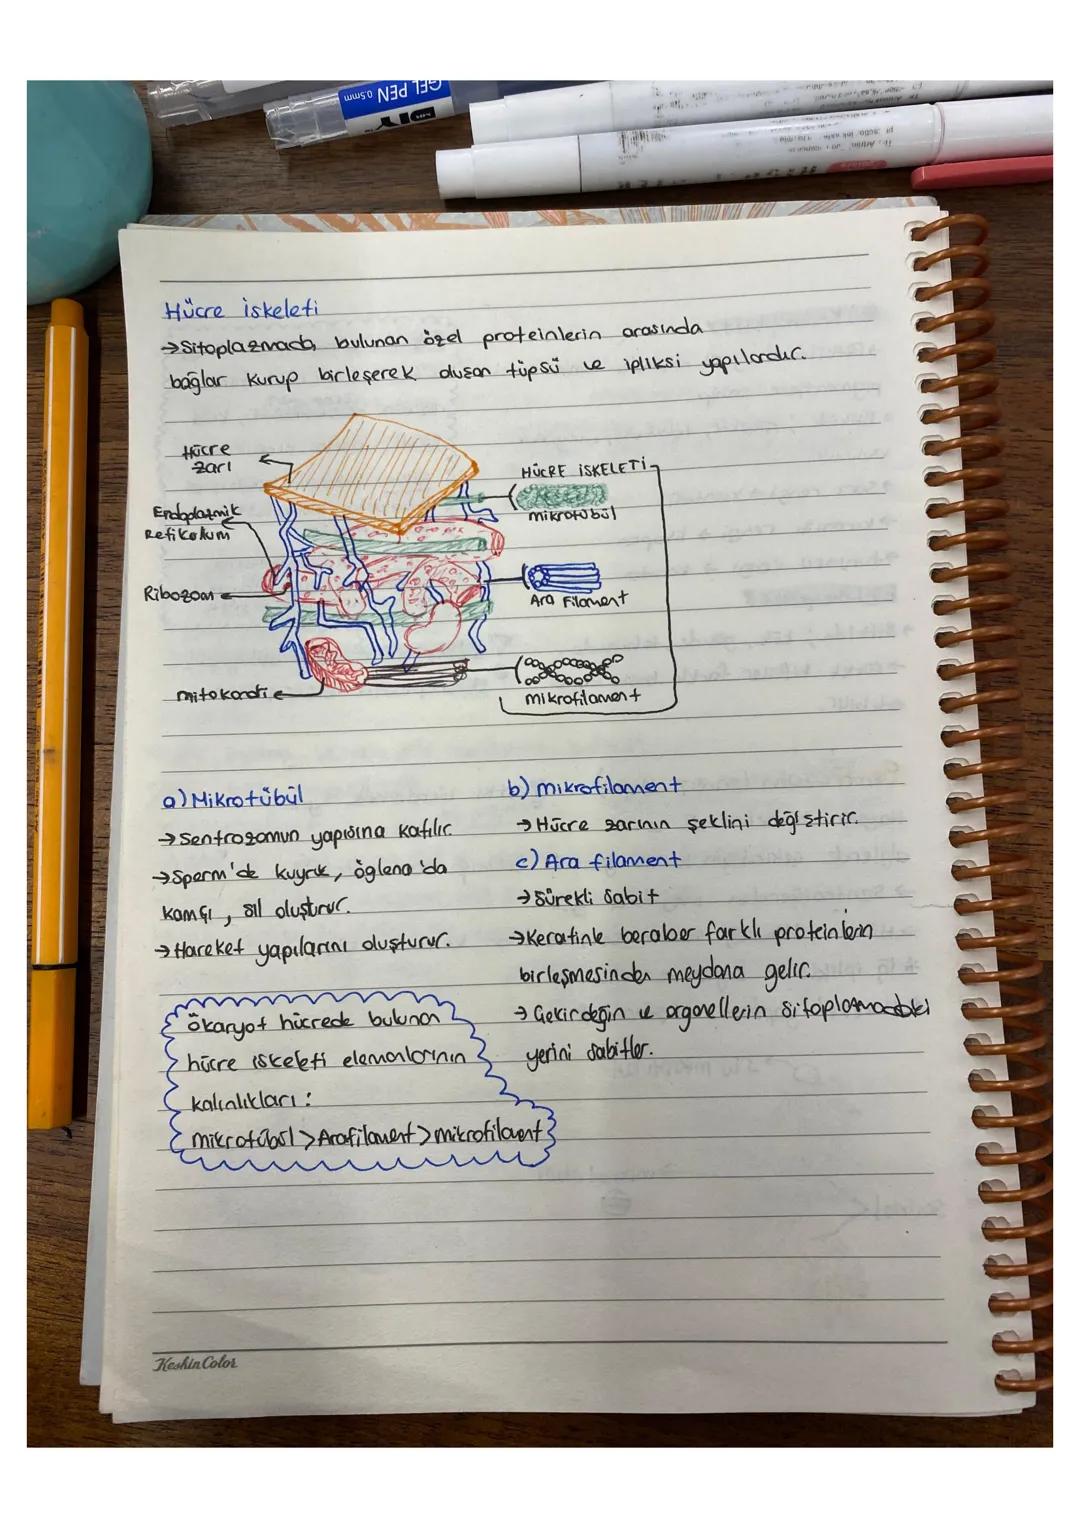 GEL PEN 0.5mm
DIY
Hücre iskeleti
→Sitoplazmada bulunan özel proteinlerin arasında
bağlar kurup birleşerek oluşan tüpsü ve ipliksi yapılardır.
Hücre
zarı
Endoplazmik
Retikulum
Ribozom
mitokondri
HÜCRE İSKELETİ
mikrotübül
Ara Filament
mikrofilament
a) Mikrotübül
→Sentrozomun yapısına katılır.
→Sperm'de kuyruk, öglena'da
kamçı, sil oluşturur.
→Hareket yapılarını oluşturur.
Ökaryot hücrede bulunan
hücre iskeleti elemanlarının
kalınlıkları:
mikrotübül>Arafilament>mikrofilament
b) mikrofilament
→Hücre zarının şeklini değiştirir.
c) Ara filament
→Sürekli sabit
→Keratinle beraber farklı proteinlerin
birleşmesinden meydana gelir.
→Çekirdeğin ve organellerin sitoplazmadaki
yerini sabitler.
Keskin Color